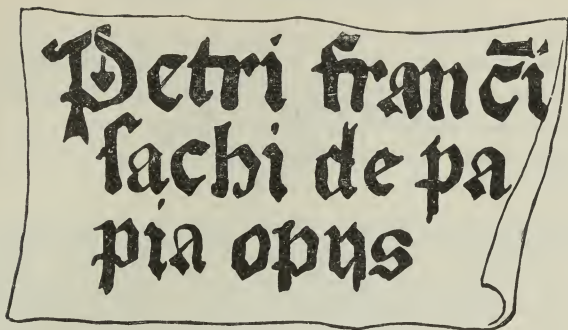 Petri franc̄i
sachi de pa
pia opus